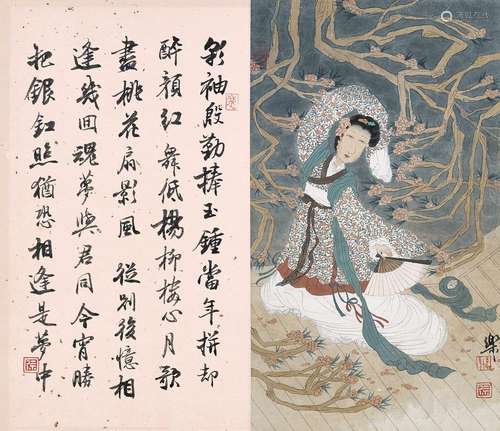 彩袖殷勤捧玉鍾當年拼却
醉顏紅舞低楊柳樓心月歌
盡桃花扇影風 從別後憶相
逢幾回魂夢與君同今宵勝
把銀釭照猶恐相逢是夢中
樂